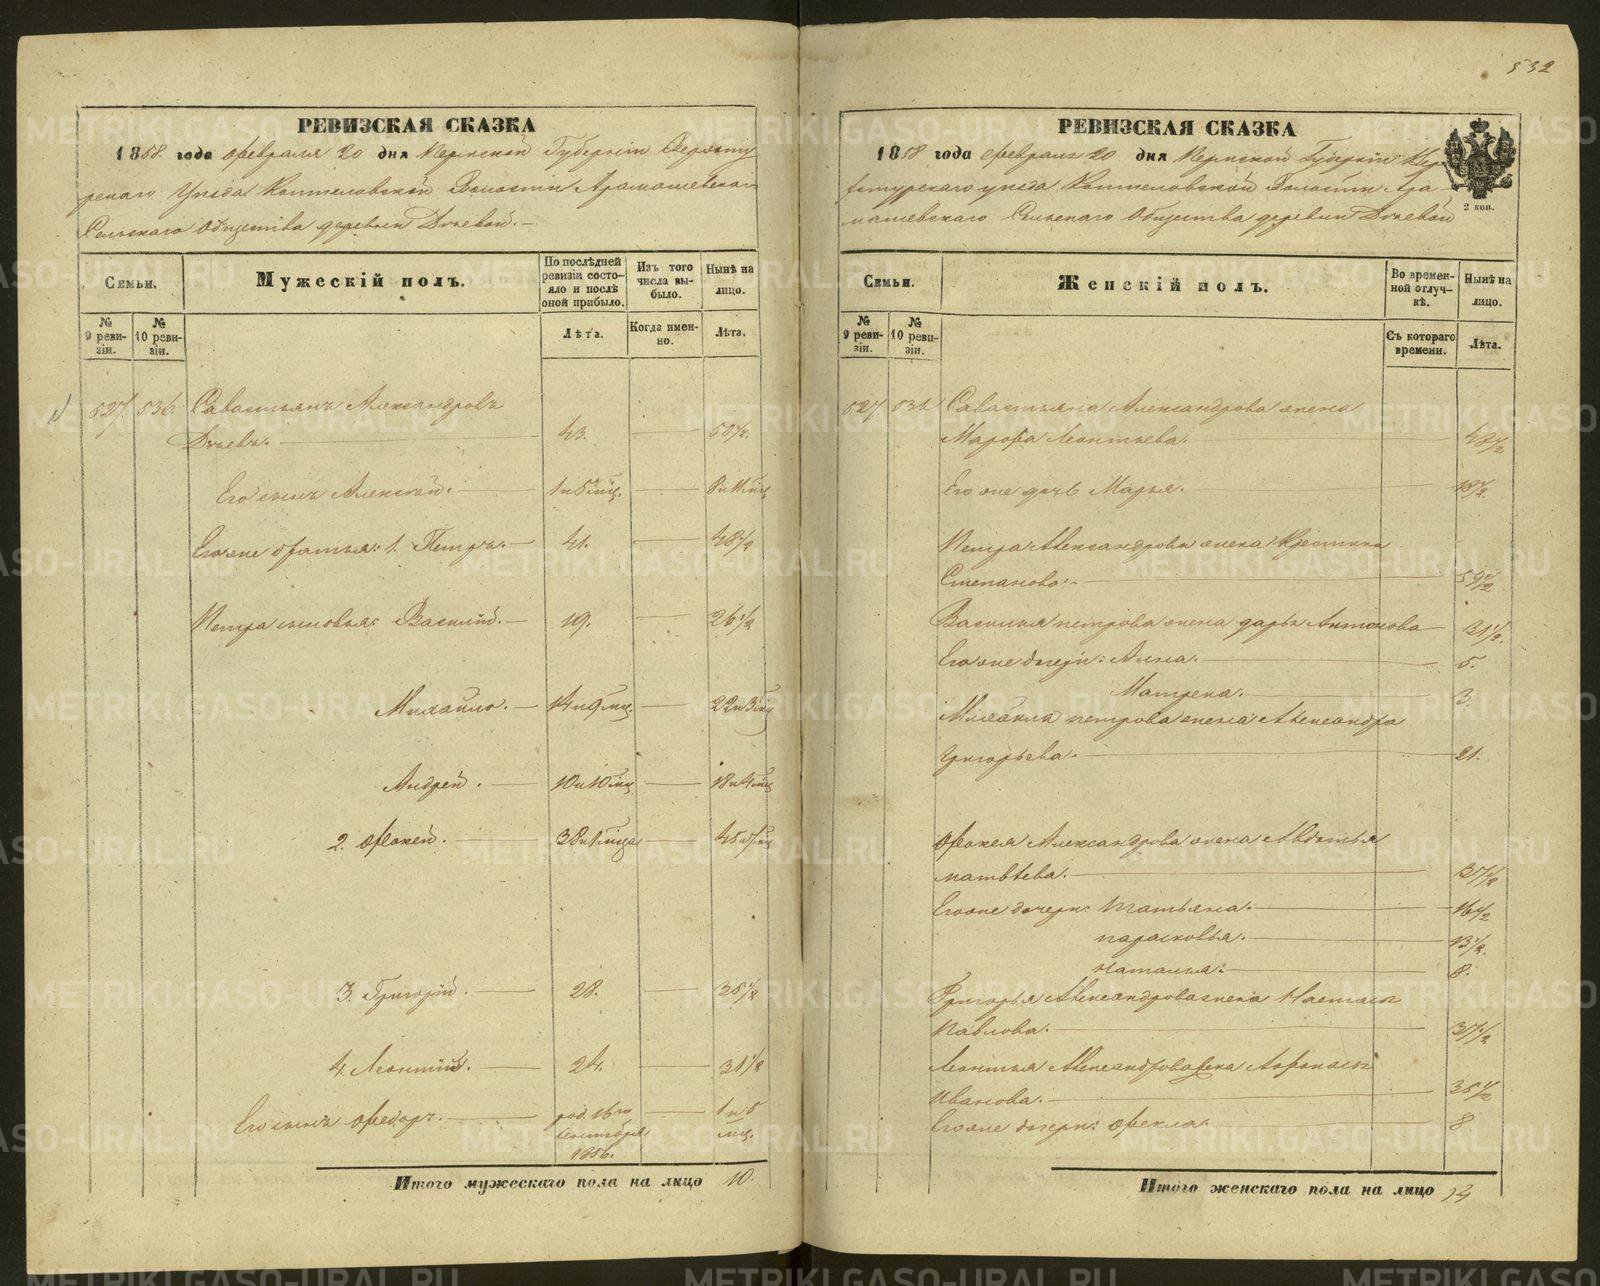 532
РЕВИЗСКАЯ СКАЗКА
1858. года февраля 20 дня Пермской Губерніи Верхоту
рскаго Уѣзда Коптеловской Волости Арамашевскаго
Сельскаго Общества деревни Дѣевой.
Семьи.
№ 9 ревизіи.
№ 10 ревизіи.
Мужескій полъ.
По послѣдней ревизіи состояло и послѣ оной прибыло.
Лѣта.
Изъ того числа выбыло.
Когда именно.
Нынѣ на лицо.
Лѣта.
527. 536. Савастьянъ Александровъ
Дѣевъ. 43. 50½.
Его сынъ Алексѣй. 1 и 5 мѣц. 8 и 11 мѣц
Его же братья: 1. Петръ. 41. 48½
Петра сыновья: Василій. 19. 26½
Михайло. 14 и 9 мц. 22 и 3 мц
Андрей. 10 и 10 мц 18 и 4 мц
2. Фокей. 38 и мца 45 и мц
3. Григорій. 28. 35½
4. Леонтій. 24. 31½
Его сынъ Федоръ. род. 16го 1 и 5
Сентября мц.
1856.
Итого мужескаго пола на лицо 10.
РЕВИЗСКАЯ СКАЗКА
1858 года февраля 20 дня Пермской Губерніи Верхотурскаго уѣзда Коптеловской Волости Ара
машевскаго Сельскаго Общества деревни Дѣевой
2 коп.
Семьи.
№ 9 ревизіи.
№ 10 ревизіи.
Женскій полъ.
Во временной отлучкѣ.
Съ котораго времени.
Нынѣ на лицо.
Лѣта.
527 536 Савастьяна Александрова жена
Марфа Леонтьева. 48½
Его же дочь Марья. 18½
Петра Александрова жена Кристина
Степанова. 59½
Василья петрова жена дарья Антонова 31½.
Его же дочери: Анна. 5.
Матрена. 3.
Михайла петрова жена Александра
Григорьева. 21.
Фокея Александрова жена Авдотья
матвѣева. 37½
Его же дочери: Татьяна. 16½
парасковья. 13½.
Наталья. 8.
Григорья Александрова жена Настасья
Павлова. 37½
Леонтья Александрова жена Афонасья
Иванова. 35½
Его же дочери: Фекла. 8
Итого женскаго пола на лицо 14
METRIKI.GASO-URAL.RU